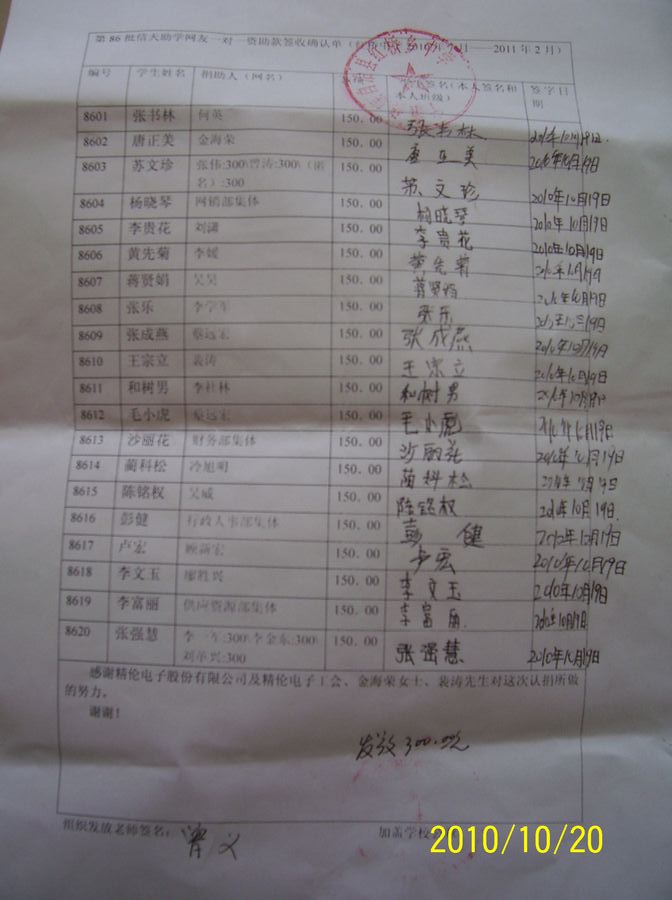 第86批信天助学网友一对一资助款签收确认单 2010年 月——2011年2月）
编号 学生姓名 捐助人（网名） 签名（本人签名和本人班级） 签字日期
8601 张书林 何英 150.00 张书林 2010年10月19日
8602 唐正美 金海荣 150.00 唐正美 2010年10月19日
8603 苏文珍 张伟:300\曾涛:300\（匿 150.00 苏文珍 2010年10月19日
名）:300
8604 杨晓琴 网销部集体 150.00 杨晓琴 2010年10月19日
8605 李贵花 刘潇 150.00 李贵花 2010年10月19日
8606 黄先菊 李媛 150.00 黄先菊
8607 蒋贤娟 吴昊 150.00 蒋贤娟 2010年10月19日
8608 张乐 李学军 150.00 张乐
8609 张成燕 蔡远宏 150.00 张成燕 2010年10月19日
8610 王宗立 裴涛 150.00 王宗立 2010年10月19日
8611 和树男 李社林 150.00 和树男
8612 毛小虎 蔡远宏 150.00 毛小虎
8613 沙丽花 财务部集体 150.00 沙丽花 2010年10月19日
8614 蔺科松 冷旭明 150.00 蔺科松
8615 陈铭权 吴威 150.00 陈铭权 2010年10月19日
8616 彭健 行政人事部集体 150.00 彭健
8617 卢宏 顾新宏 150.00 卢宏 2010年10月19日
8618 李文玉 廖胜兴 150.00 李文玉 2010年10月19日
8619 李富丽 供应资源部集体 150.00 李富丽
8620 张强慧 李一军:300\李金东:300\ 150.00 张强慧 2010年10月19日
刘华兴:300
感谢精伦电子股份有限公司及精伦电子工会、金海荣女士、裴涛先生对这次认捐所做
的努力。
谢谢！
发放300.00元
组织发放老师签名： 加盖学校
2010/10/20